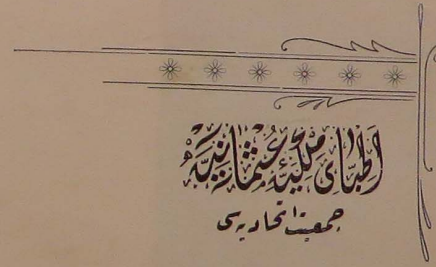 اطبای ملكیهٔ عثمانیه
جمعیت اتحادیه‌سی